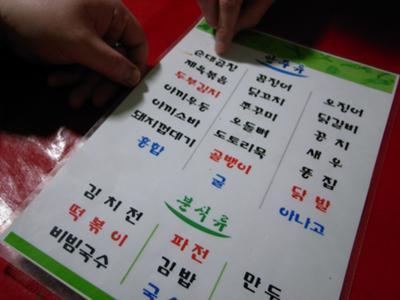 안주류
순대곱창
제육볶음
두부김치
아끼우동
아끼소바
돼지껍데기
홍합
꼼장어
닭꼬치
쭈꾸미
오돌뼈
도토리묵
골뱅이
굴
오징어
닭갈비
꽁치
새우
똥집
닭발
아나고
분식류
김치전
떡볶이
비빔국수
파전
김밥
만두